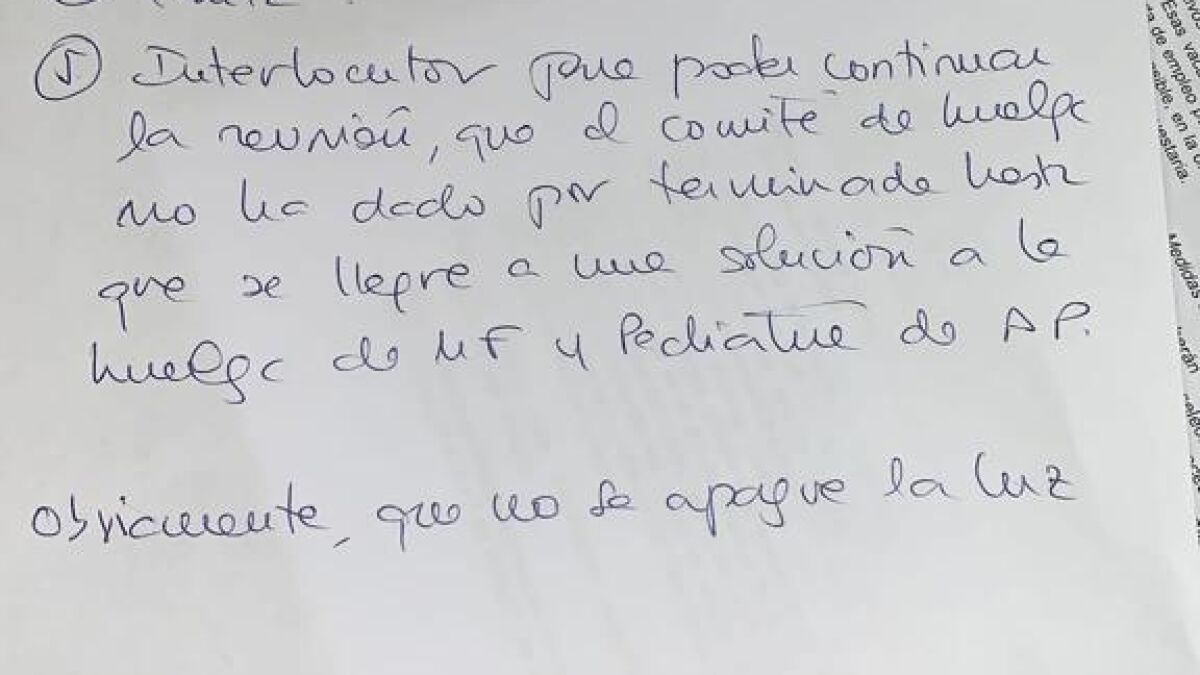 ⑤ Interlocutor para poder continuar
la reunión, que el comité de huelga
no ha dado por terminada hasta
que se llegue a una solución a la
huelga de MF y Pediatría de AP.
Obviamente, que no se apague la luz
Esas vac
de empleo p
sible, en la
estaría.
Medidas